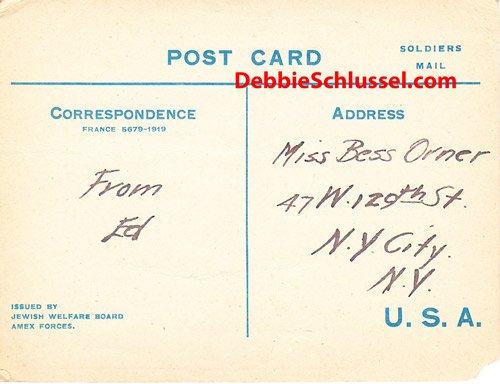 POST CARD
SOLDIERS
MAIL
DebbieSchlussel.com
CORRESPONDENCE
FRANCE 5679-1919
From
Ed
ISSUED BY
JEWISH WELFARE BOARD
AMEX FORCES.
ADDRESS
Miss Bess Orner
47 W. 129th St.
N.Y. City.
N.Y.
U. S. A.